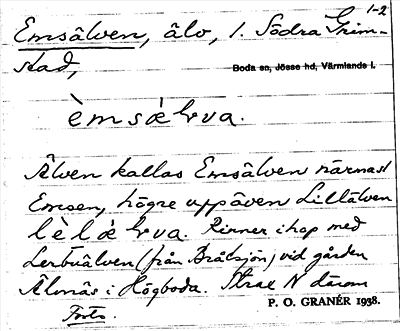 1-2
Emsälven, älv, 1. Södra Grim-
stad,
Boda sn, Jösse hd, Värmlands l.
èmsǽḷva.
Älven kallas Emsälven närmast
Emsen, högre upp även Lillälven
lèlǽḷva. Rinner ihop med
Lerbuälven (från Bråtsjön) vid gården
Älvnäs i Högboda. Strax N därom
P. O. GRANÉR 1938.
Forts.